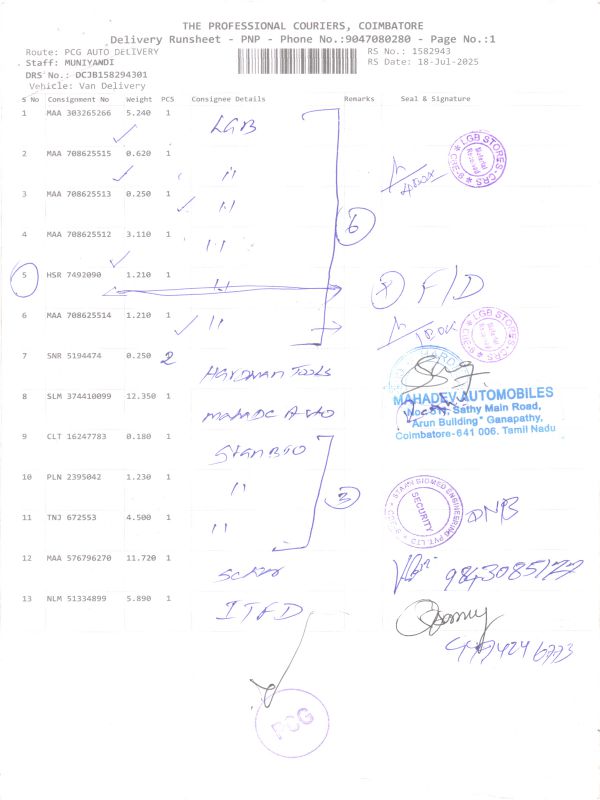 THE PROFESSIONAL COURIERS, COIMBATORE
Delivery Runsheet - PNP - Phone No.:9047080280 - Page No.:1
Route: PCG AUTO DELIVERY
RS No.: 1582943
Staff: MUNIYANDI
RS Date: 18-Jul-2025
DRS No.: DCJB158294301
Vehicle: Van Delivery
S No Consignment No Weight PCS Consignee Details Remarks Seal & Signature
1 MAA 303265266 5.240 1 LGB
2 MAA 708625515 0.620 1 "
LGB STORES - CRS
Material Received
3 MAA 708625513 0.250 1 "
6
4 MAA 708625512 3.110 1 "
5 HSR 7492090 1.210 1 "
F/D
6 MAA 708625514 1.210 1 "
LGB STORES - CRS
7 SNR 5194474 0.250 1 2 Hardman Tools
MAHADEV AUTOMOBILES
8 SLM 374410099 12.350 1 Mahadc Auto
Sathy Main Road,
"Arun Building" Ganapathy,
Coimbatore-641 006. Tamil Nadu
9 CLT 16247783 0.180 1 Stanbio
10 PLN 2395042 1.230 1 "
3
SECURITY
11 TNJ 672553 4.500 1 "
12 MAA 576796270 11.720 1
13 NLM 51334899 5.890 1 ITFD
PCG